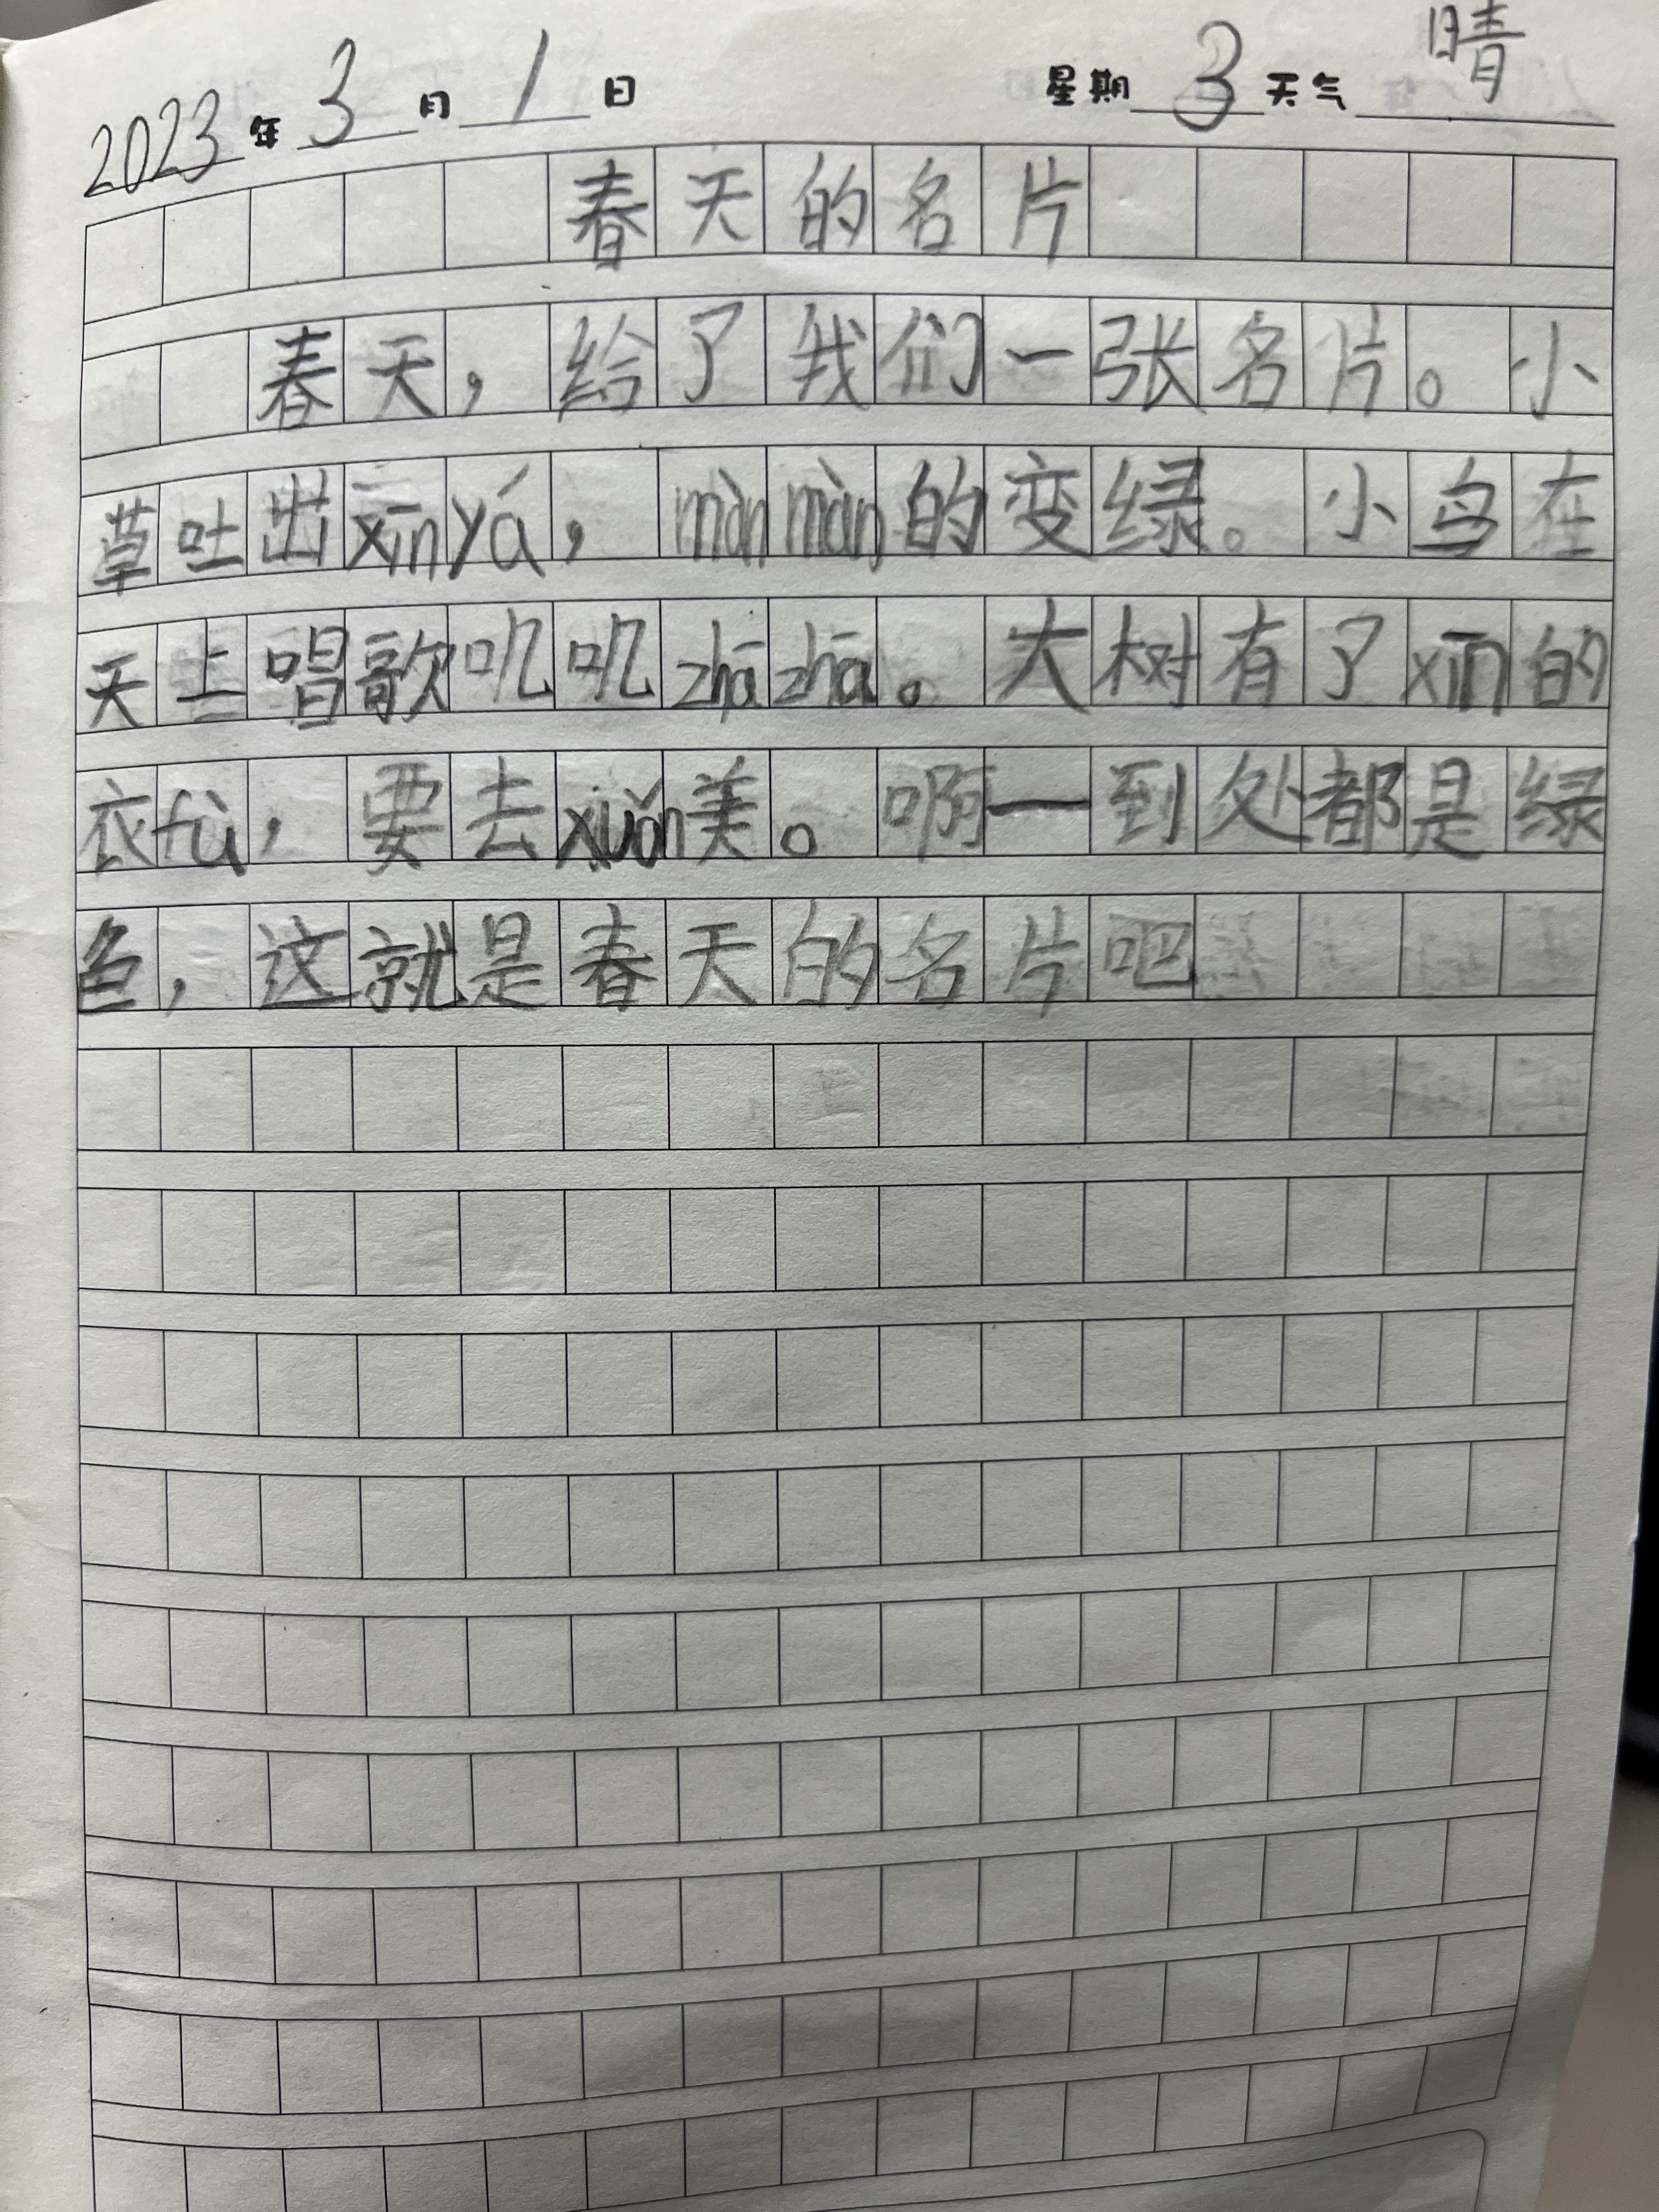 2023年3月1日 星期3天气晴
春天的名片
春天，给了我们一张名片。小
草吐出xīnyá，mànmàn的变绿。小鸟在
天上唱歌叽叽zhāzhā。大树有了xīn的
衣fù，要去xuǎn美。啊—到处都是绿
色，这就是春天的名片吧